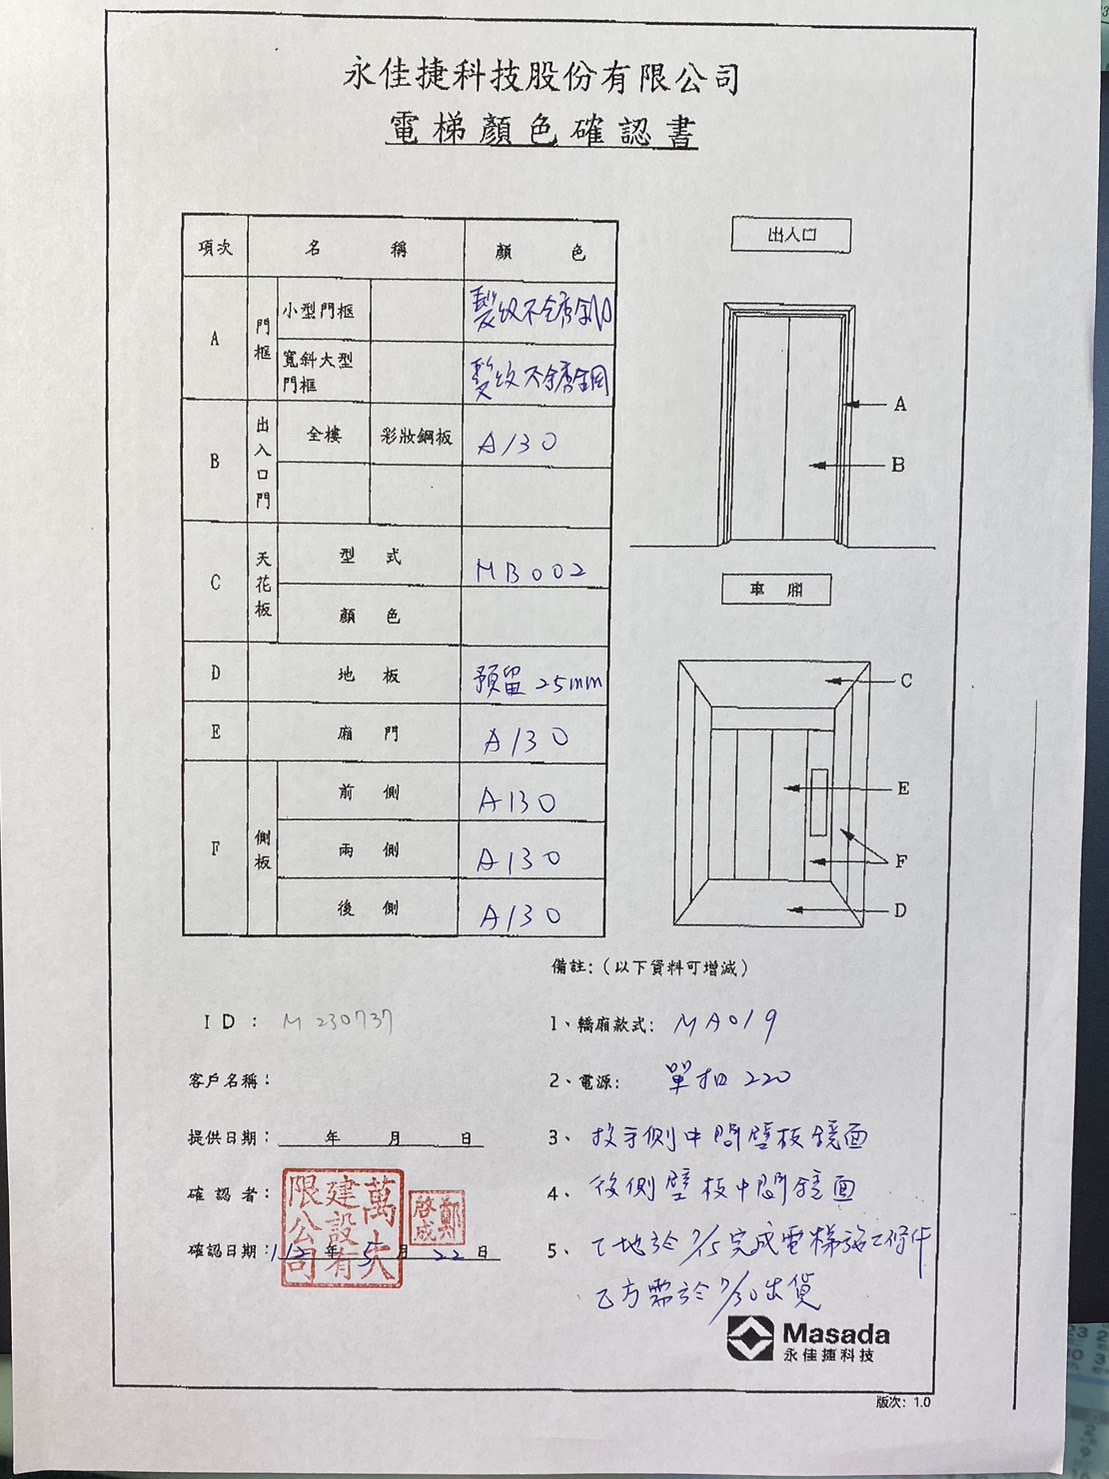 永佳捷科技股份有限公司
電梯顏色確認書
項次 名稱 顏色
A 門框 小型門框 髮紋不銹鋼
寬斜大型門框 髮紋不銹鋼
B 出入口門 全樓 彩妝鋼板 A130
C 天花板 型式 MB002
顏色
D 地板 預留25mm
E 廂門 A130
F 側板 前側 A130
兩側 A130
後側 A130
出入口
A
B
車廂
C
E
F
D
備註:(以下資料可增減)
ID: M230737
客戶名稱:
提供日期: 年 月 日
確認者:
確認日期: 112年5月22日
萬大建設有限公司
鄭啓成
1、轎廂款式: MA019
2、電源: 單相220
3、扶手側中間壁板鏡面
4、後側壁板中間鏡面
5、工地於7/15完成電梯施工條件
乙方需於7/30出貨
Masada
永佳捷科技
版次: 1.0